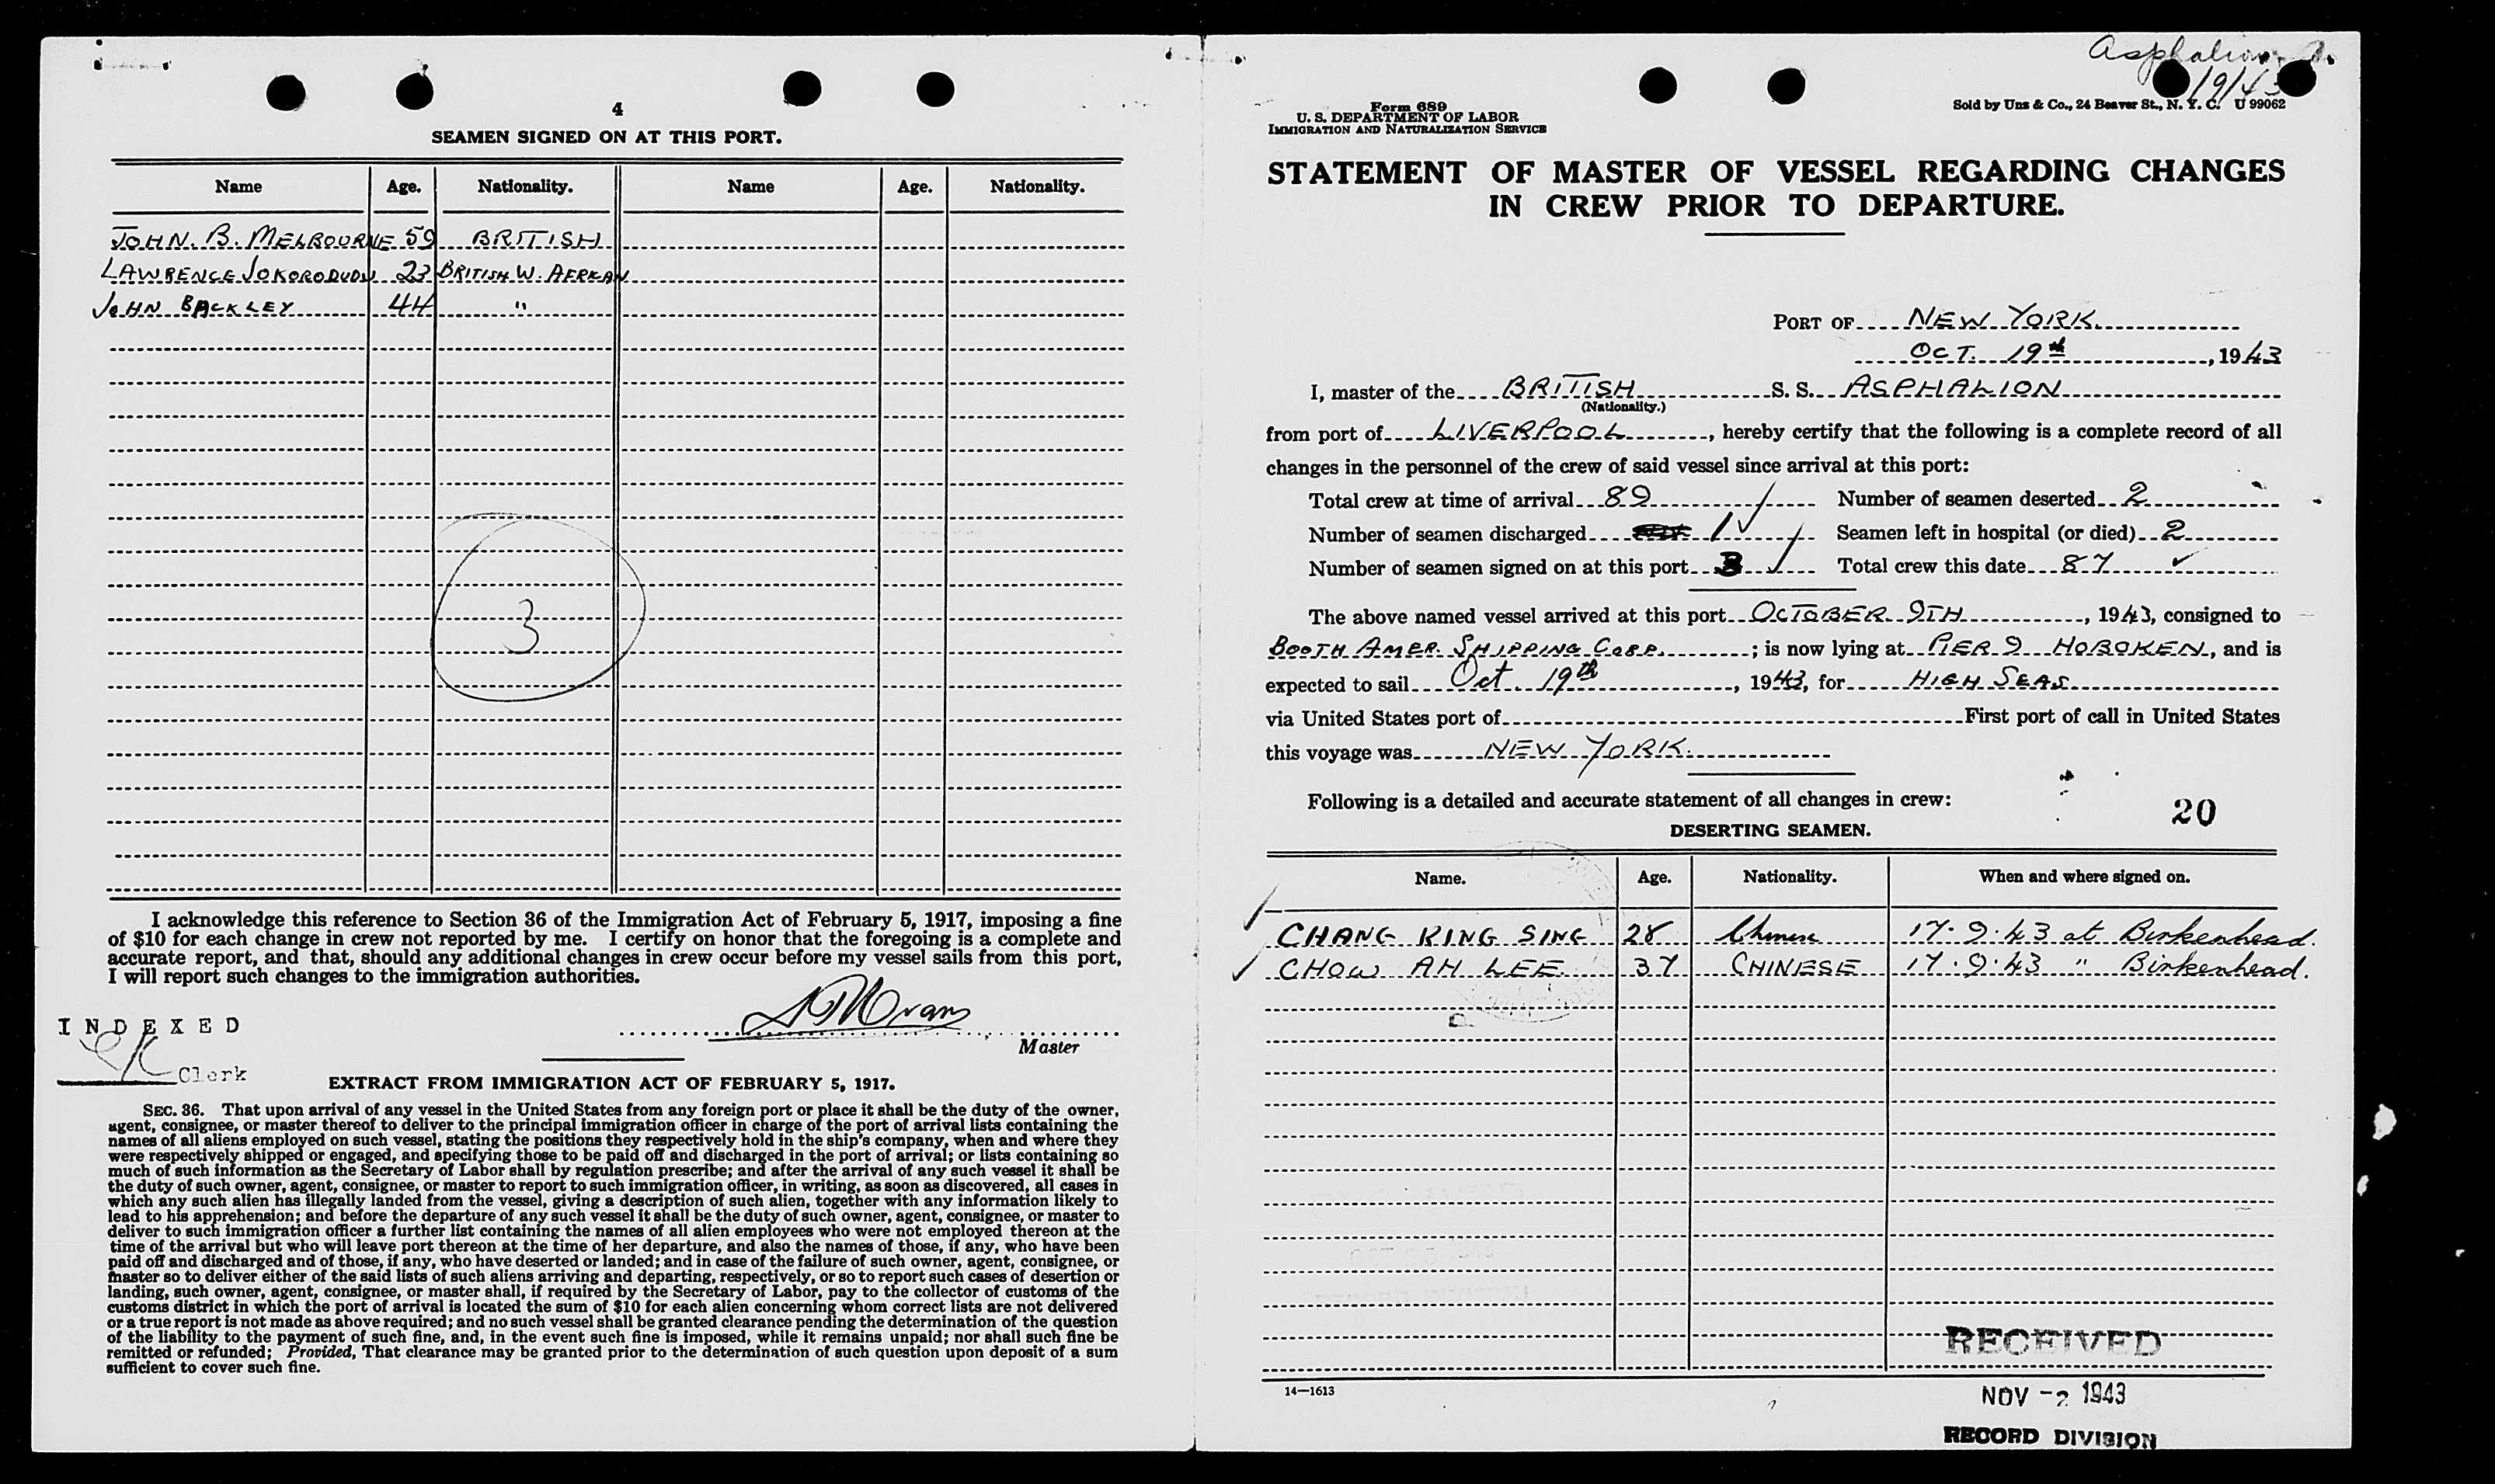 4
SEAMEN SIGNED ON AT THIS PORT.
Name Age. Nationality. Name Age. Nationality.
JOHN. B. MELBOURNE 59 BRITISH
LAWRENCE JOKORODUDU 23 BRITISH W. AFRICAN
JOHN BACKLEY 44 "
3
I acknowledge this reference to Section 36 of the Immigration Act of February 5, 1917, imposing a fine
of $10 for each change in crew not reported by me. I certify on honor that the foregoing is a complete and
accurate report, and that, should any additional changes in crew occur before my vessel sails from this port,
I will report such changes to the immigration authorities.
INDEXED
Master
Clerk
EXTRACT FROM IMMIGRATION ACT OF FEBRUARY 5, 1917.
SEC. 36. That upon arrival of any vessel in the United States from any foreign port or place it shall be the duty of the owner,
agent, consignee, or master thereof to deliver to the principal immigration officer in charge of the port of arrival lists containing the
names of all aliens employed on such vessel, stating the positions they respectively hold in the ship's company, when and where they
were respectively shipped or engaged, and specifying those to be paid off and discharged in the port of arrival; or lists containing so
much of such information as the Secretary of Labor shall by regulation prescribe; and after the arrival of any such vessel it shall be
the duty of such owner, agent, consignee, or master to report to such immigration officer, in writing, as soon as discovered, all cases in
which any such alien has illegally landed from the vessel, giving a description of such alien, together with any information likely to
lead to his apprehension; and before the departure of any such vessel it shall be the duty of such owner, agent, consignee, or master to
deliver to such immigration officer a further list containing the names of all alien employees who were not employed thereon at the
time of the arrival but who will leave port thereon at the time of her departure, and also the names of those, if any, who have been
paid off and discharged and of those, if any, who have deserted or landed; and in case of the failure of such owner, agent, consignee, or
master so to deliver either of the said lists of such aliens arriving and departing, respectively, or so to report such cases of desertion or
landing, such owner, agent, consignee, or master shall, if required by the Secretary of Labor, pay to the collector of customs of the
customs district in which the port of arrival is located the sum of $10 for each alien concerning whom correct lists are not delivered
or a true report is not made as above required; and no such vessel shall be granted clearance pending the determination of the question
of the liability to the payment of such fine, and, in the event such fine is imposed, while it remains unpaid; nor shall such fine be
remitted or refunded; Provided, That clearance may be granted prior to the determination of such question upon deposit of a sum
sufficient to cover such fine.
Asphalion
19/43
Form 689
U. S. DEPARTMENT OF LABOR
IMMIGRATION AND NATURALIZATION SERVICE
Sold by Unz & Co., 24 Beaver St., N. Y. C. U 99062
STATEMENT OF MASTER OF VESSEL REGARDING CHANGES
IN CREW PRIOR TO DEPARTURE.
PORT OF NEW YORK
OCT. 19th, 1943
I, master of the BRITISH S. S. ASPHALION
(Nationality.)
from port of LIVERPOOL, hereby certify that the following is a complete record of all
changes in the personnel of the crew of said vessel since arrival at this port:
Total crew at time of arrival 89 Number of seamen deserted 2
Number of seamen discharged 1 Seamen left in hospital (or died) 2
Number of seamen signed on at this port 3 Total crew this date 87
The above named vessel arrived at this port OCTOBER 9TH, 1943, consigned to
BOOTH AMER. SHIPPING CORP.; is now lying at PIER 9 HOBOKEN, and is
expected to sail Oct. 19th, 1943, for HIGH SEAS
via United States port of First port of call in United States
this voyage was NEW YORK.
Following is a detailed and accurate statement of all changes in crew:
20
DESERTING SEAMEN.
Name. Age. Nationality. When and where signed on.
CHANG KING SING 28 Chinese 17.9.43 at Birkenhead.
CHOW AH LEE 37 CHINESE 17.9.43 " Birkenhead.
RECEIVED
14—1613
NOV -2 1943
RECORD DIVISION